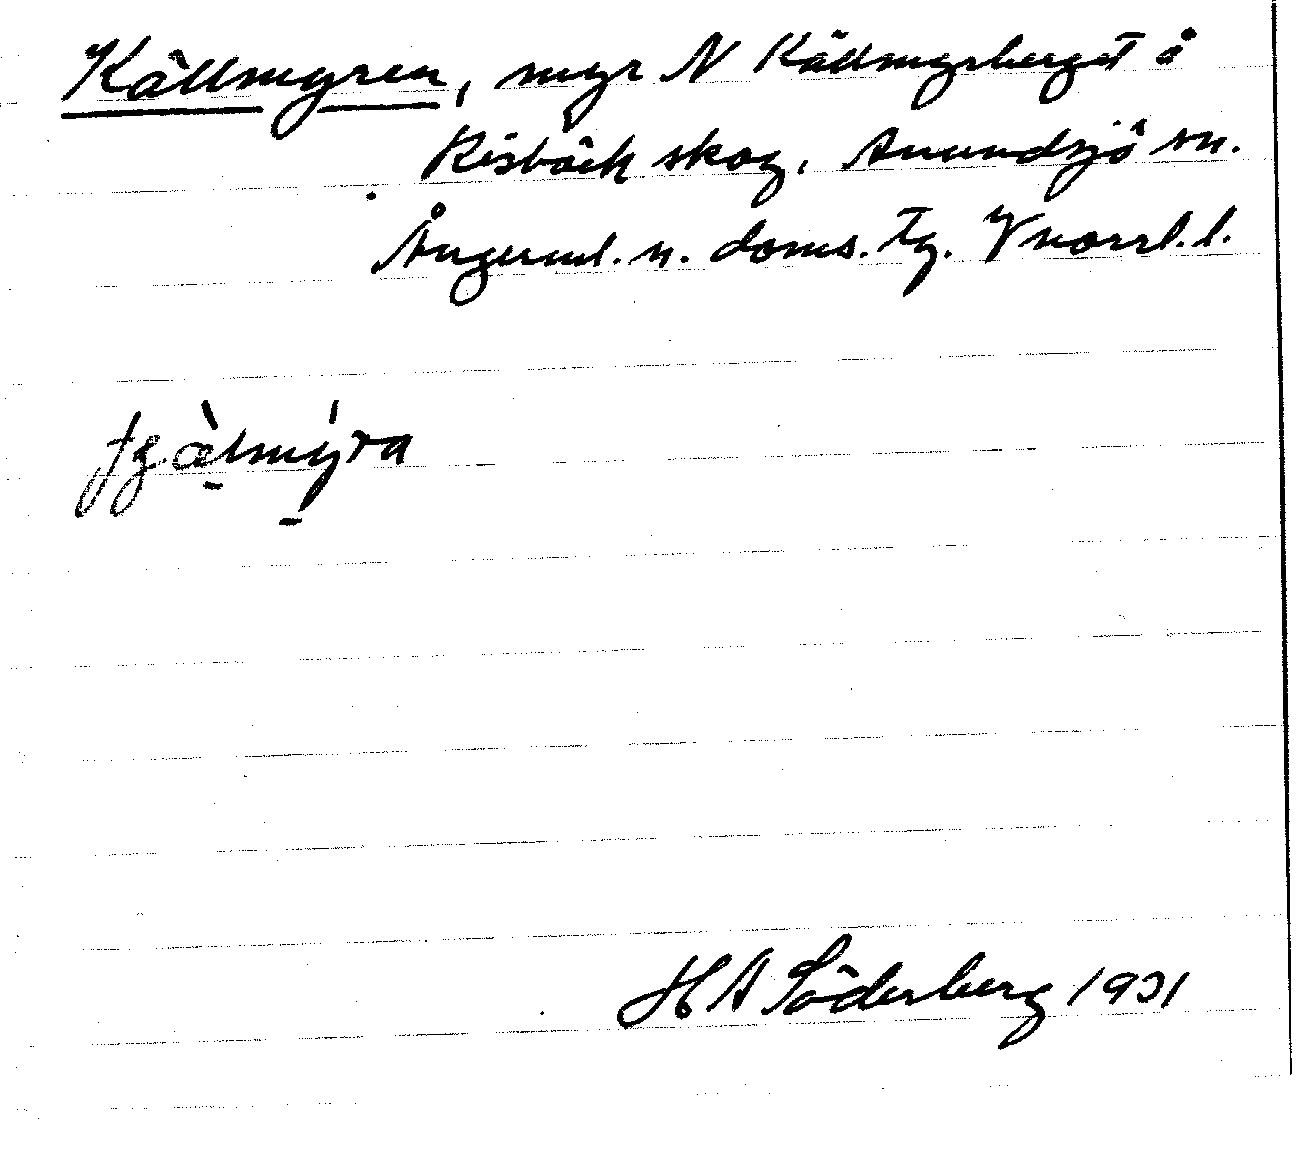 Källmyren, myr N Källmyrberget å
Risbäck skog, Anundsjö sn.
Ångerml. n. doms. tg. Vnorrl. l.
H A Söderberg 1931